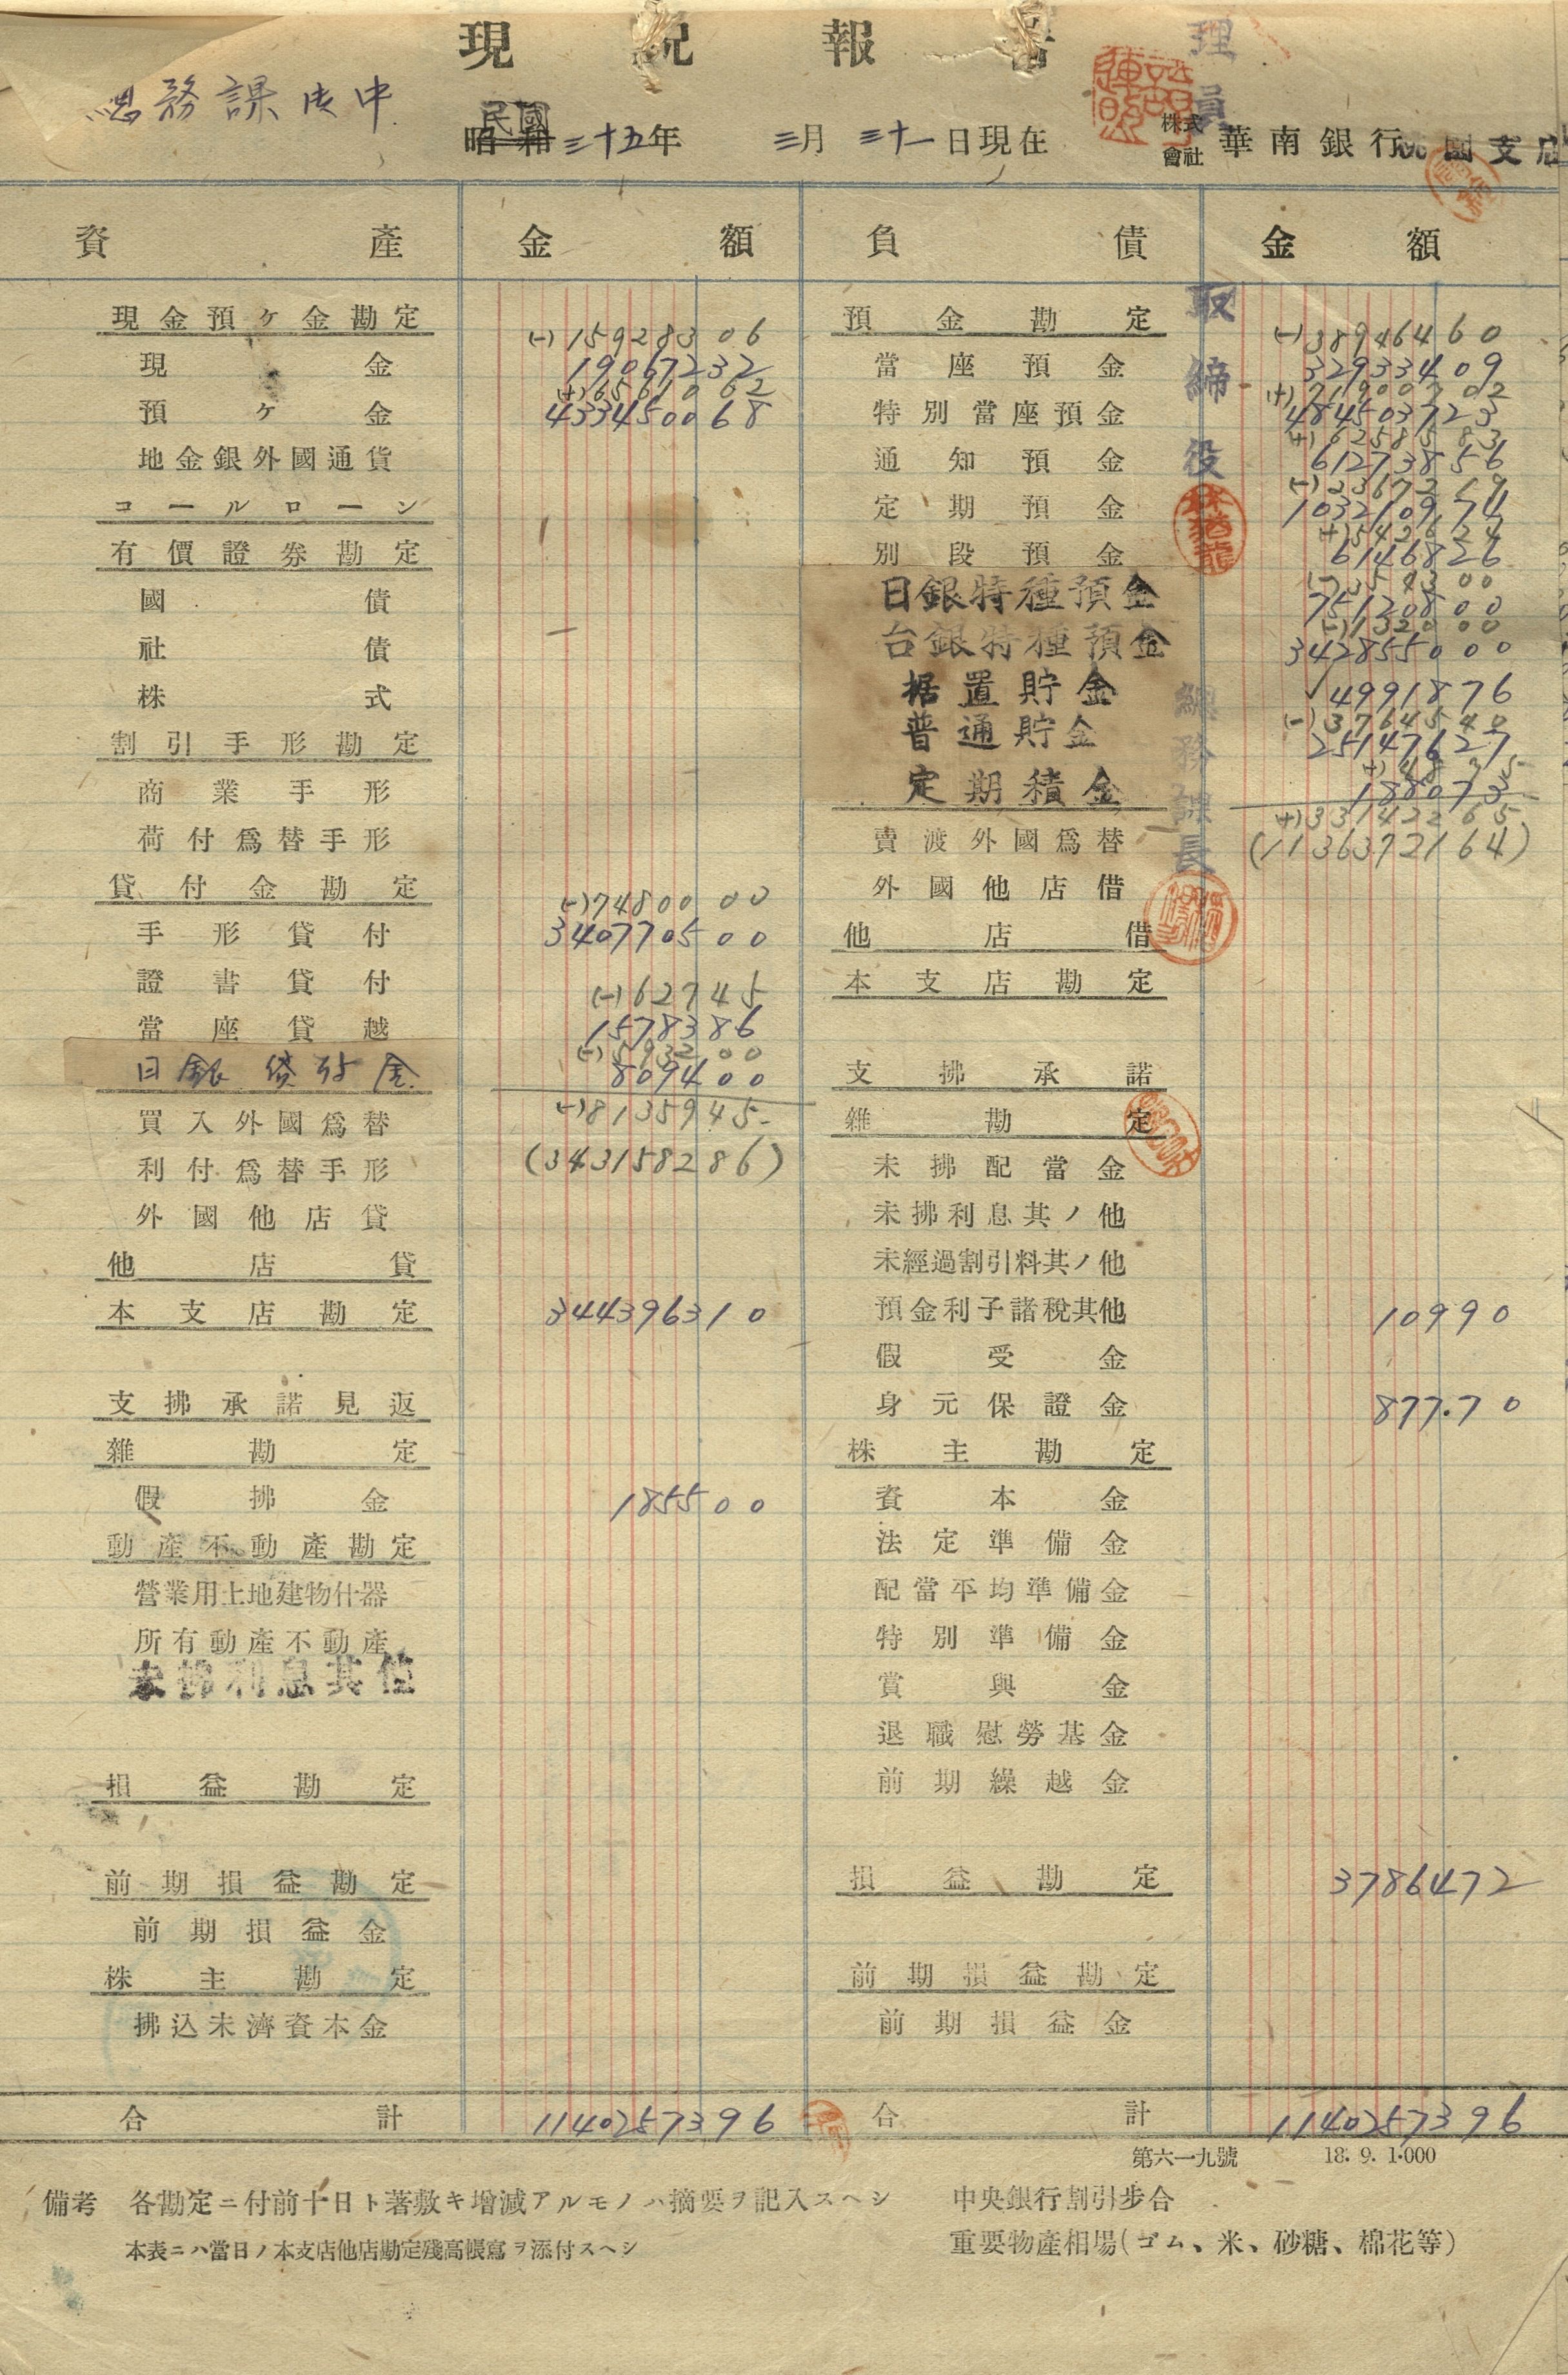 現況報書
理員
總務課御中
民國
昭和三十五年 三月 三十一日現在
株式會社 華南銀行桃園支店
資產 金額 負債 金額
取締役
總務課長
現金預ヶ金勘定 (-)15928306
現金 19067232
(+)6561062
預ヶ金 433450068
地金銀外國通貨
コールローン
有價證券勘定
國債
社債
株式
割引手形勘定
商業手形
荷付爲替手形
貸付金勘定 (-)7480000
手形貸付 340770500
證書貸付 (-)62745
當座貸越 1578386
(-)593200
日銀貸付金 809400
(-)8135945
買入外國爲替
利付爲替手形 (343158286)
外國他店貸
他店貸
本支店勘定 344396310
支拂承諾見返
雜勘定
假拂金 185500
動產不動產勘定
營業用土地建物什器
所有動產不動產
未拂利息其他
損益勘定
前期損益勘定
前期損益金
株主勘定
拂込未濟資本金
合計 1140257396
預金勘定 (-)38946460
當座預金 329334409
(+)71900702
特別當座預金 484503723
(+)6258583
通知預金 61273856
定期預金 103210974
別段預金 6146826
日銀特種預金 75120800
(-)132000
台銀特種預金 34285000
据置貯金 4991876
(-)3764540
普通貯金 25147627
定期積金 188073
(+)33142265
賣渡外國爲替 (1136372164)
外國他店借
他店借
本支店勘定
支拂承諾
雜勘定
未拂配當金
未拂利息其ノ他
未經過割引料其ノ他
預金利子諸稅其他 10990
假受金
身元保證金 877.70
株主勘定
資本金
法定準備金
配當平均準備金
特別準備金
賞與金
退職慰勞基金
前期繰越金
損益勘定 3786472
前期損益勘定
前期損益金
合計 1140257396
第六一九號 18. 9. 1.000
備考 各勘定ニ付前十日ト著敷キ增減アルモノハ摘要ヲ記入スヘシ
本表ニハ當日ノ本支店他店勘定殘高帳寫ヲ添付スヘシ
中央銀行割引步合
重要物產相場(ゴム、米、砂糖、棉花等)